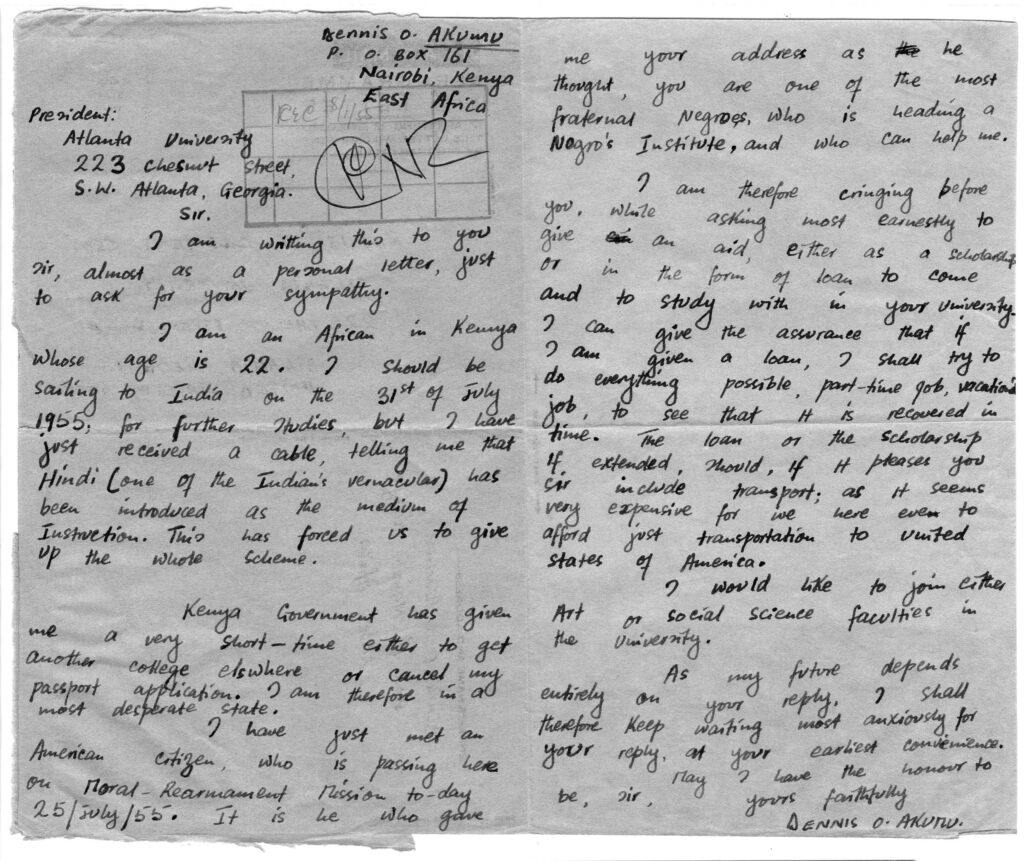 Dennis O. AKUMU
P. O. BOX 161
Nairobi, Kenya
East Africa
REC 8/1/55
NR
President:
Atlanta University
223 Chesnut street,
S.W. Atlanta, Georgia.
Sir.
I am writting this to you
sir, almost as a personal letter, just
to ask for your sympathy.
I am an African in Kenya
whose age is 22. I should be
sailing to India on the 31st of july
1955, for further studies, but I have
just received a cable, telling me that
Hindi (one of the Indian's vernacular) has
been introduced as the medium of
Instruction. This has forced us to give
up the whole scheme.
Kenya Government has given
me a very short-time either to get
another college elsewhere or cancel my
passport application. I am therefore in a
most desperate state.
I have just met an
American citizen, who is passing here
on Moral-Rearmament Mission to-day
25/july/55. It is he who gave
me your address as he
thought, you are one of the most
fraternal Negroes, who is heading a
Negro's Institute, and who can help me.
I am therefore cringing before
you, while asking most earnestly to
give an aid, either as a scholarship
or in the form of loan to come
and to study with in your University.
I can give the assurance that if
I am given a loan, I shall try to
do everything possible, part-time job, vacation's
job, to see that it is recovered in
time. The loan or the scholarship
if extended, should, if it pleases you
sir include transport; as it seems
very expensive for we here even to
afford just transportation to united
states of America.
I would like to join either
Art or social science faculties in
the University.
As my future depends
entirely on your reply, I shall
therefore keep waiting most anxiously for
your reply, at your earliest convenience.
May I have the honour to
be, sir, yours faithfully
DENNIS O. AKUMU.